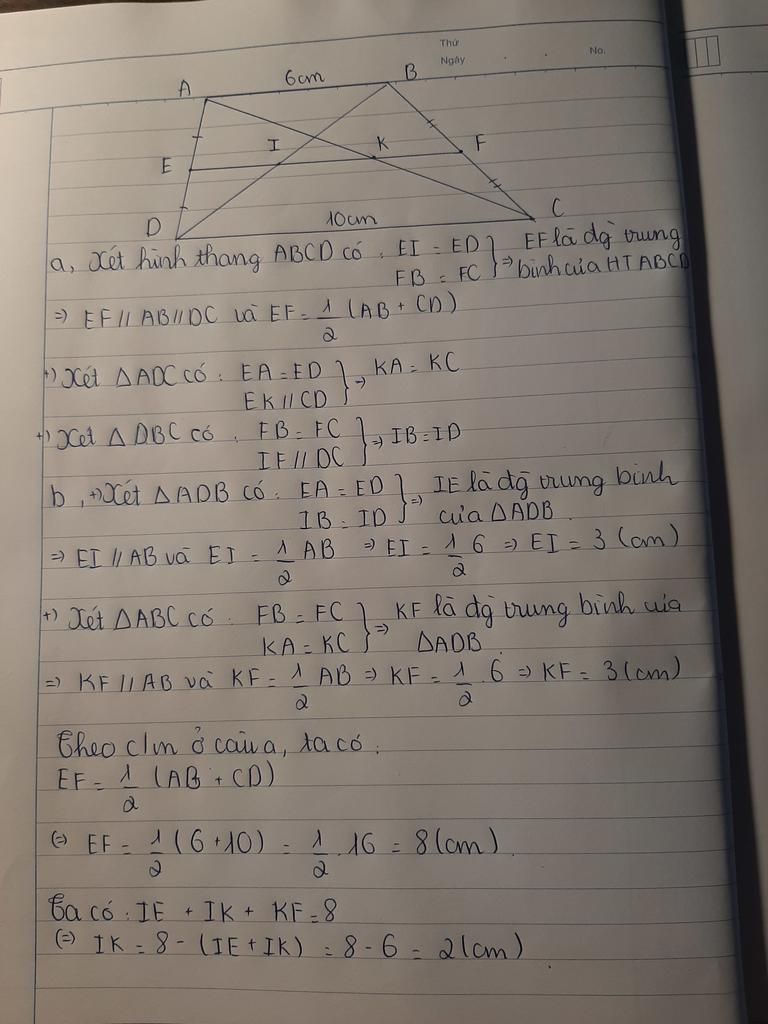 Thứ
Ngày
No.
A 6cm B
E I K F
D 10cm C
a, Xét hình thang ABCD có: EI = ED } ⇒ EF là đg̀ trung
FB = FC bình của HT ABCD
⇒ EF // AB // DC và EF = 1/2 (AB + CD)
+) Xét △ADC có: EA = ED } ⇒ KA = KC
EK // CD
+) Xét △DBC có: FB = FC } ⇒ IB = ID
IF // DC
b, +) Xét △ADB có: EA = ED } ⇒ IE là đg̀ trung bình
IB = ID của △ADB
⇒ EI // AB và EI = 1/2 AB ⇒ EI = 1/2 . 6 ⇒ EI = 3 (cm)
+) Xét △ABC có: FB = FC } ⇒ KF là đg̀ trung bình của
KA = KC △ADB.
⇒ KF // AB và KF = 1/2 AB ⇒ KF = 1/2 . 6 ⇒ KF = 3 (cm)
Theo c/m ở câu a, ta có:
EF = 1/2 (AB + CD)
(=) EF = 1/2 (6 + 10) = 1/2 . 16 = 8 (cm).
Ta có: IE + IK + KF = 8
(=) IK = 8 - (IE + IK) = 8 - 6 = 2 (cm).